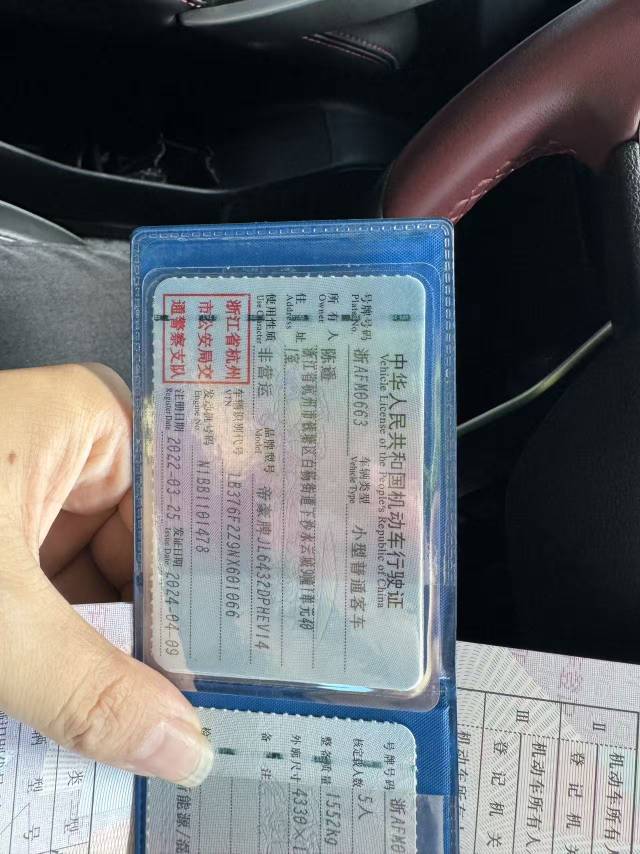 中华人民共和国机动车行驶证
Vehicle License of the People's Republic of China
号牌号码 浙AFM0663 车辆类型 小型普通客车
Plate No. Vehicle Type
所有人 陈遥
Owner
住址 浙江省杭州市钱塘区白杨街道下沙水云
Address
使用性质 非营运 品牌型号 帝豪牌JL6432DPHEV14
Use Character Model
浙江省杭州
市公安局交
通警察支队
车辆识别代号 LB376F2Z9NX601066
VIN
发动机号码 N1BB1101478
Engine No.
注册日期 2022-03-25 发证日期 2024-04-09
Register Date Issue Date
号牌号码 浙AFM0
核定载人数 5人
整备质量 1552kg
外廓尺寸 4330×1
备注
检
能源/混
II 机动车所有人
登记机关
III 机动车所有人
登记机关
机动车所有人
类型
辆型号